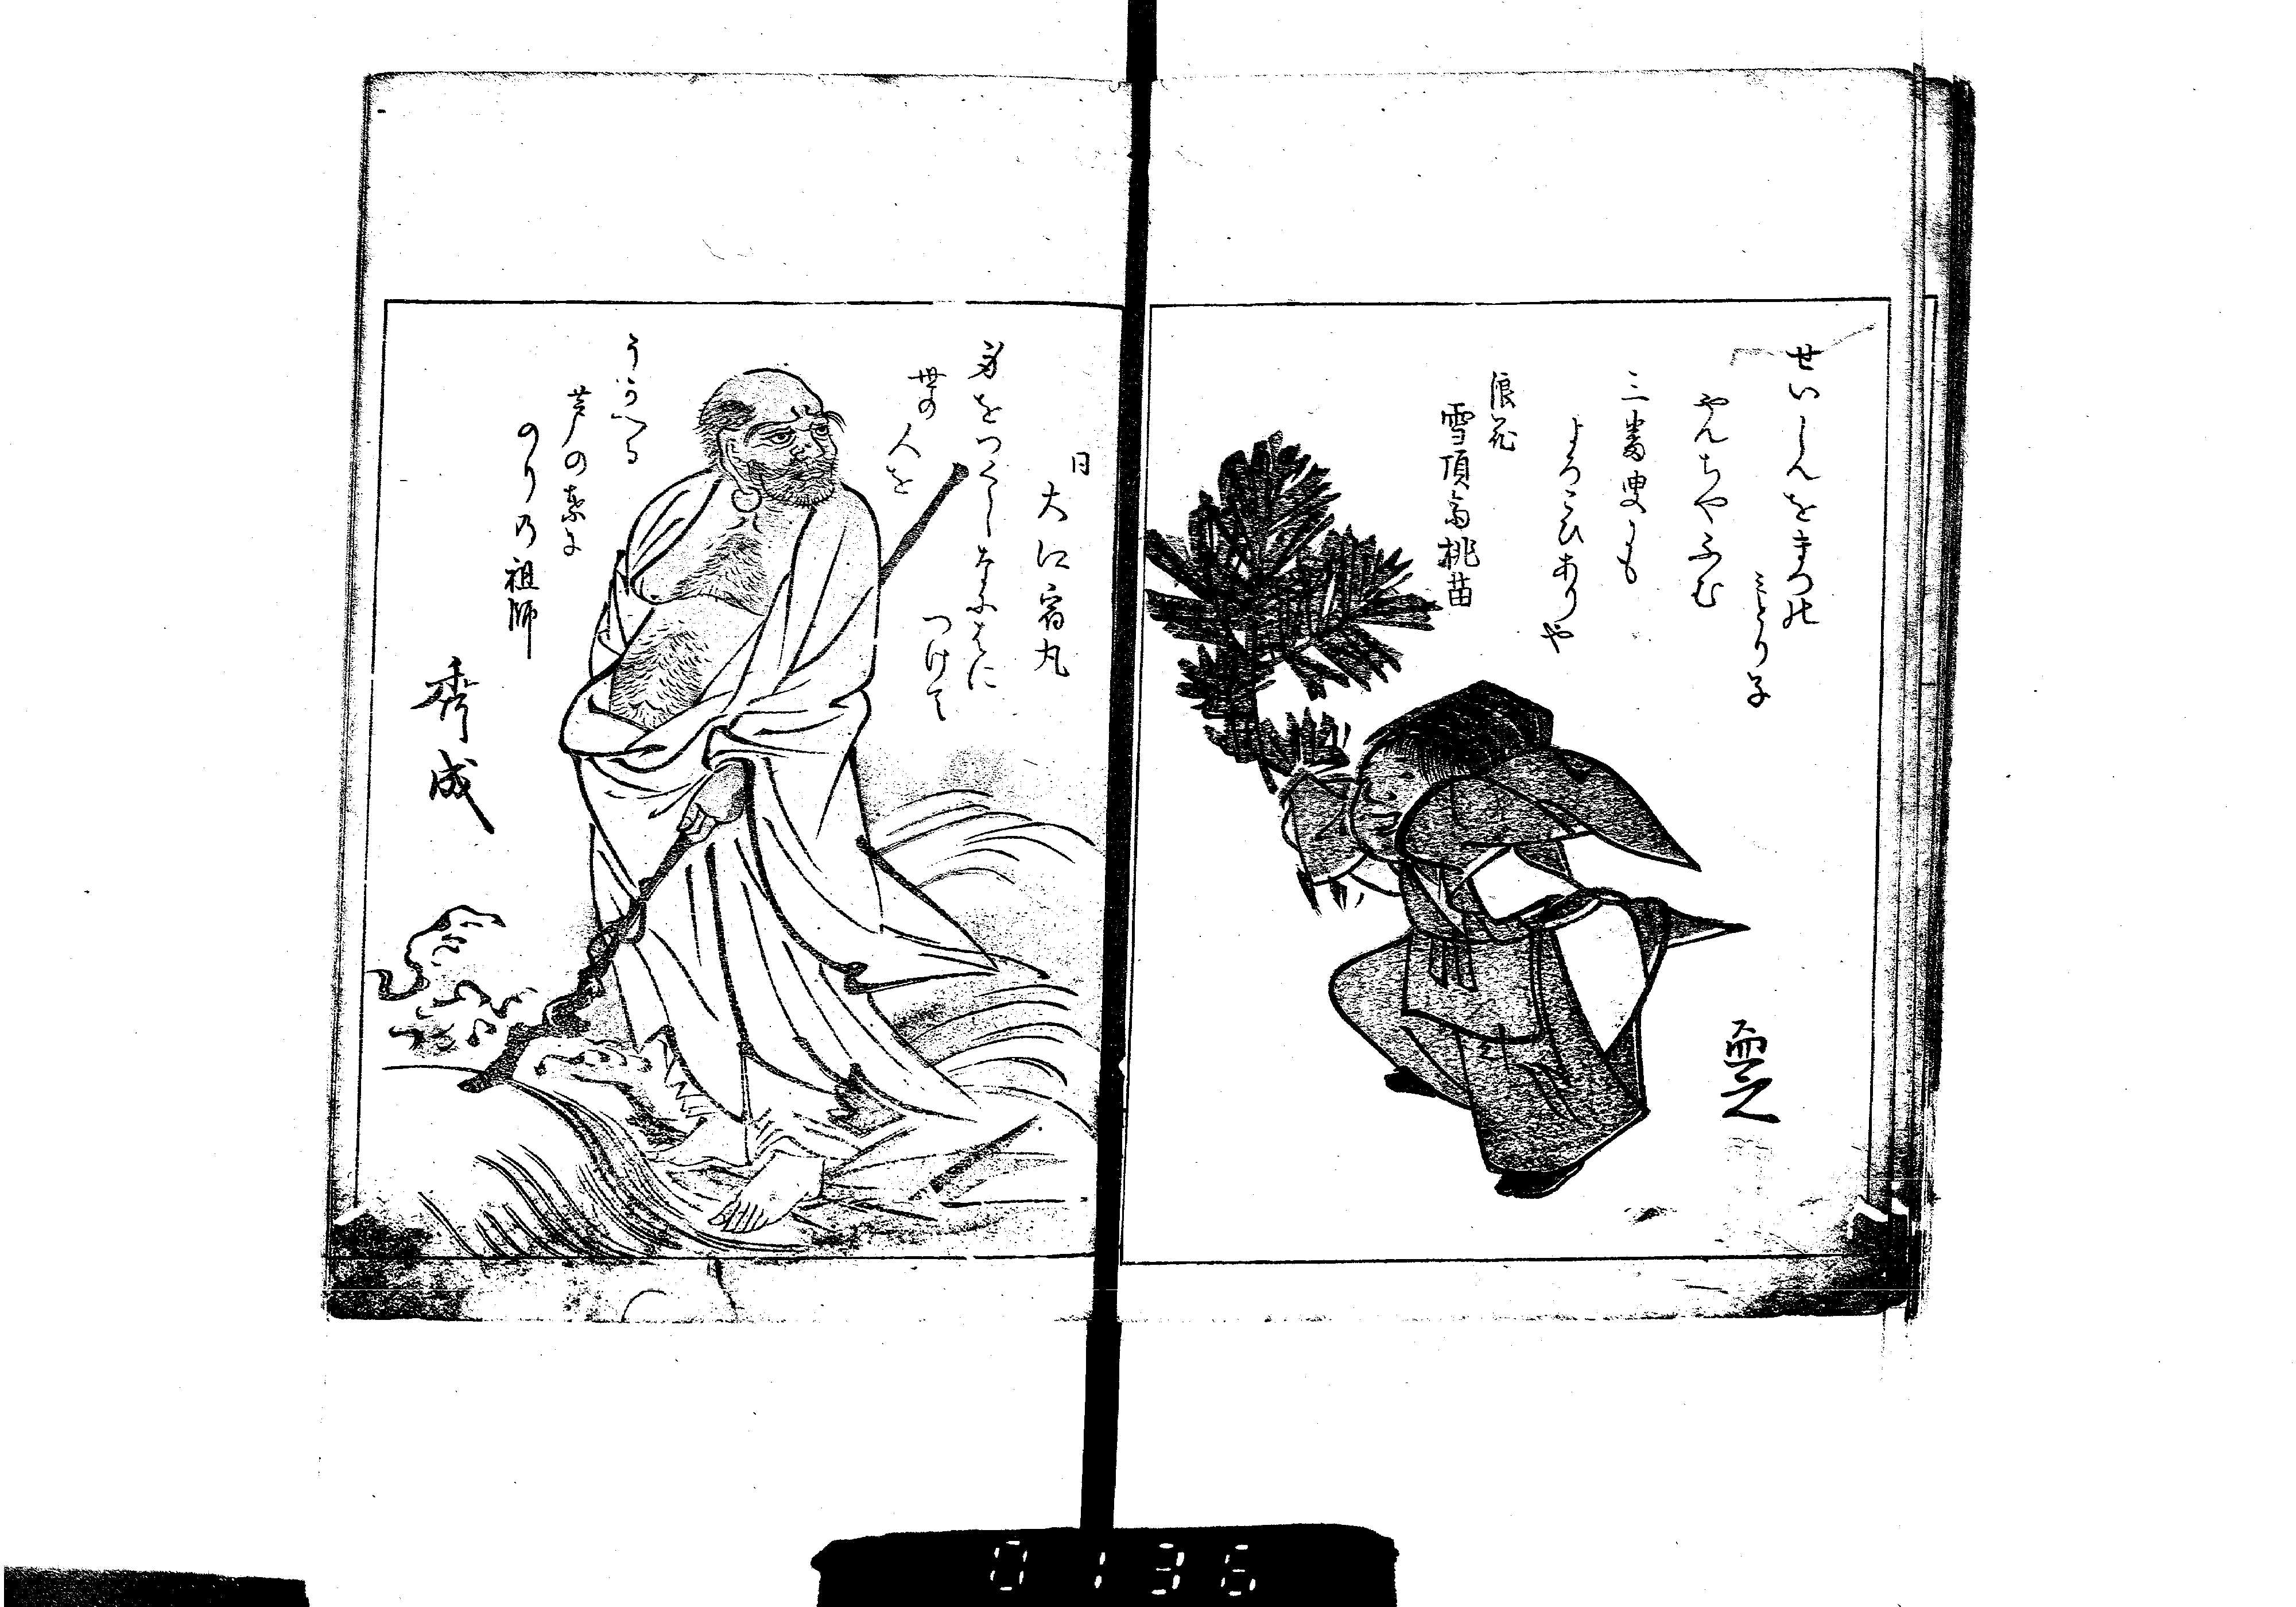 せいしんをまつの
みとり子
やんちやふむ
三番叟にも
よろこひありや
浪花
雪頂斎桃苗
而之
日
大江宿丸
身をつくしなにはに
つけて
世の人を
うかへる
芦の葉に
のりの祖師
秀成
0136